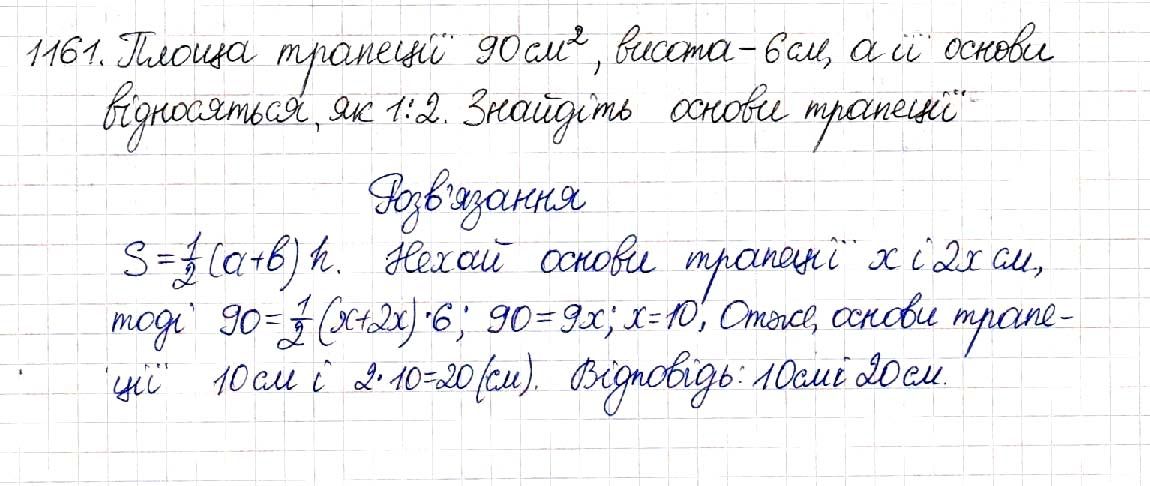 1161. Площа трапеції 90 см², висота – 6 см, а її основи
відносяться, як 1:2. Знайдіть основи трапеції
Розв'язання
S = 1/2 (a+b) h. Нехай основи трапеції x і 2x см,
тоді 90 = 1/2 (x+2x)·6; 90 = 9x; x = 10, Отже, основи трапе-
ції 10 см і 2·10=20 (см). Відповідь: 10 см і 20 см.